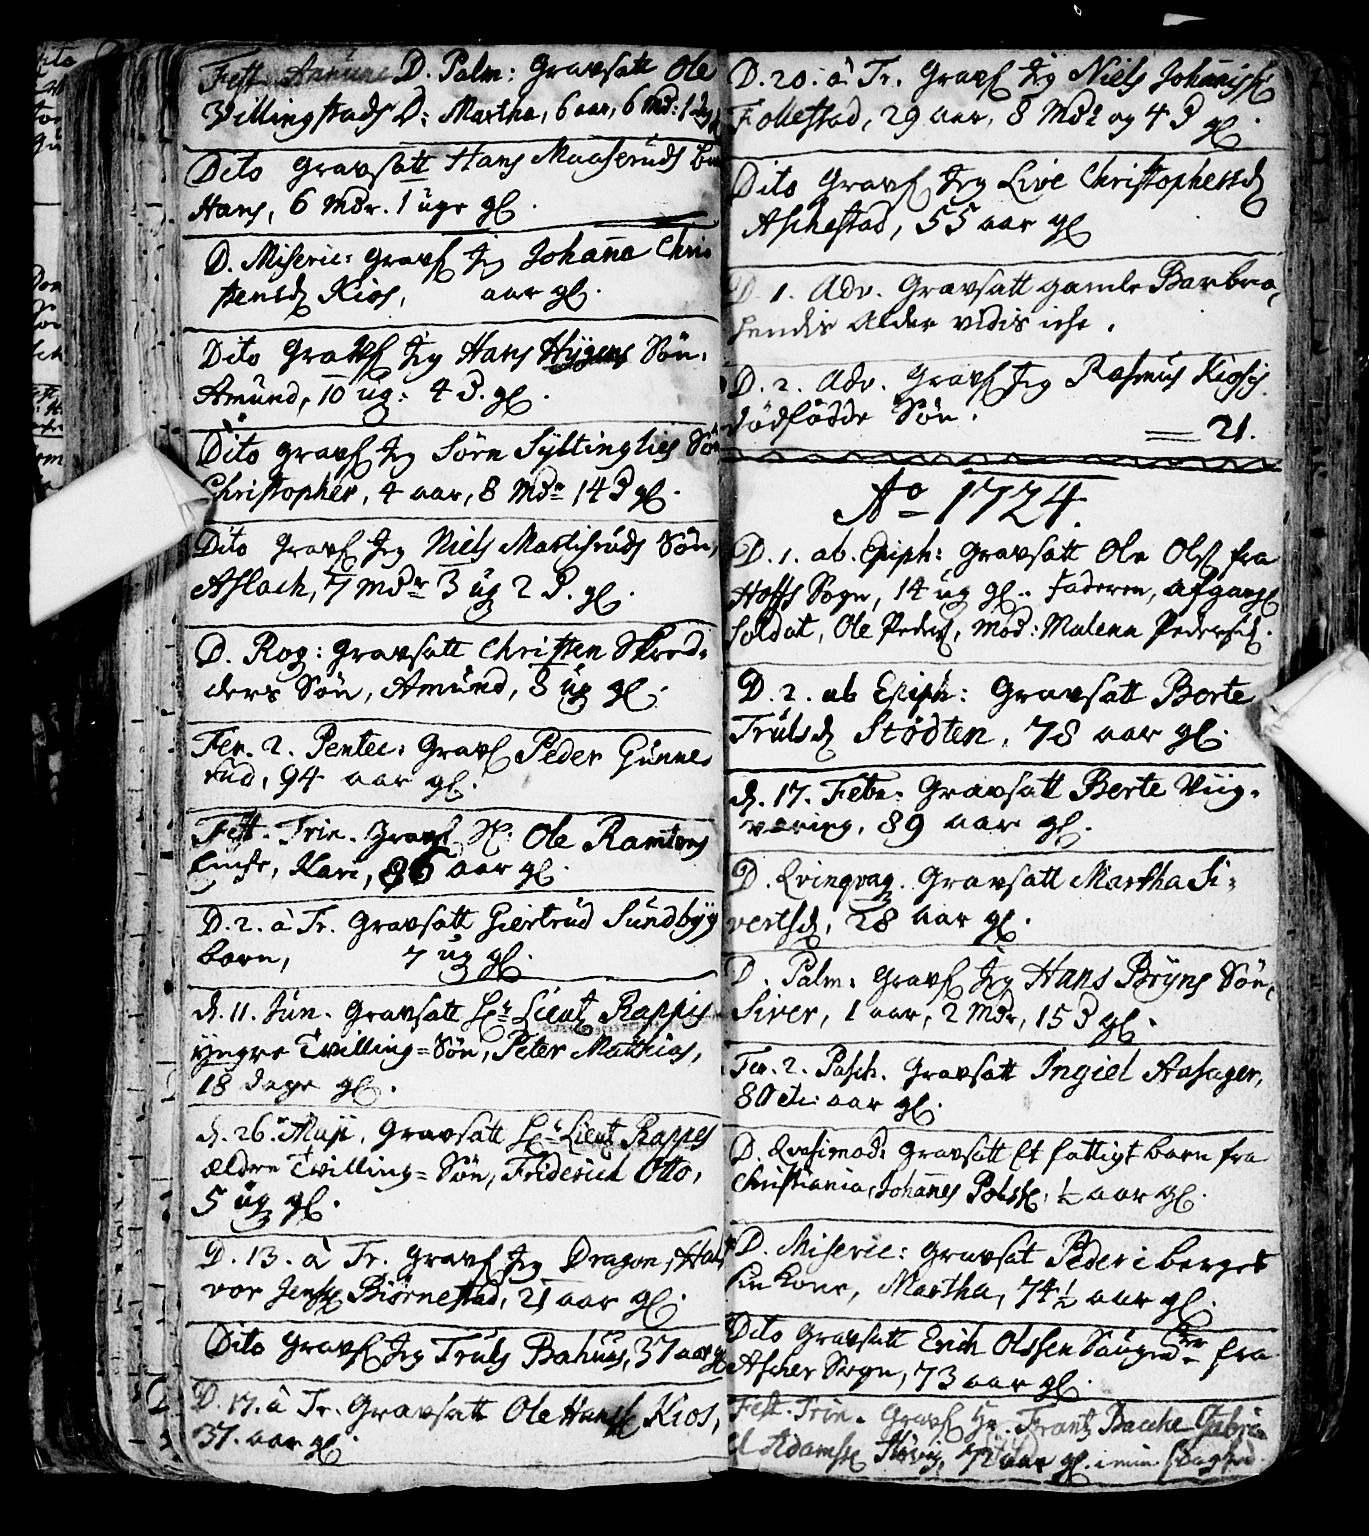 Fest. D. Palm: Gravsatt Ole
Billingstads D: Martha, 6 aar, 6 Mdr: 1 dag
Dito Gravsatt Hans Maaseruds
Hans, 6 Mdr. 1 uge gl.
D. Miseric: Gravs Jeg Johana Chri
stensd Kios, aar gl.
Dito Gravs Jeg Hans Hygens Søn,
Amund, 10 ug: 4 D. gl.
Dito gravs Jeg Sørn Syltinglies Søn
Christopher, 4 aar, 8 Mdr 14 D gl.
Dito Gravs Jeg Niels Martisruds Søn,
Aslach, 7 mdr 3 ug 2 D. gl.
D. Rog: Gravsatt Christen Skred-
ders Søn, Amund, 8 ug gl.
Fer. 2. Pentec: Gravs Peder Gunne
rud, 94 aar gl.
Fest. Trin. Gravs Ole Ramtons
Enke, Kari, 86 aar gl.
D. 2. à Tr. Gravsatt Giertrud Sundbyg
barn, 7 ug gl.
d. 11. Jun. Gravsatt Hr Lieut Rappes
yngre Tvilling-Søn, Peter Mathias,
18 dage gl.
d. 26. Gravsatt Hr Lieut Rappes
ældre Tvilling-Søn, Friderich Otto,
5 ug gl.
D. 13. à Tr. Gravs Jeg Dragon, Hal
vor Jens Biørnestad, 21 aar gl.
Dito Gravs Jeg Truls Bahuus, 37 aar gl
D. 17. à Tr. Gravsatt Ole Hans Kios,
37. aar gl.
D. 20. à Tr. Gravs Jeg Niels Johannis
Follestad, 29 aar, 8 Mdr og 4 D gl.
Dito Gravs Jeg Live Christophersd
Aschestad, 55 aar gl
D. 1. Adv. Gravsatt gamle Barbra,
hendis Alder vidis iche.
D. 2. Adv. Gravs Jeg Rasmus Kiosis
dødfødde Søn.
= 21.
Ao 1724.
D. 1. ab. Epiph: Gravsatt Ole Ols fra
Hoffs Sogn, 14 ug gl. Faderen, afgangs
Soldat, Ole Peders, Mod: Malena Pedersd.
D. 2. ab Epiph: Gravsatt Borte
Trulsd Stødten, 78 aar gl.
d. 17. Febr. Gravsatt Berte Viig-
væring, 89 aar gl.
D. Qvinqvag. Gravsatt Martha Si-
vertsd, 28 aar gl.
D. Palm: Gravs Jeg Hans Bryns Søn,
Siver, 1 aar, 2 Mdr, 15 D gl.
Fer. 2. Pasch. Gravsatt Ingiel Aasager,
80 aar gl.
D. Qvasimod: Gravsatt Et fattigt barn fra
Christiania, Johanes Polsk, ½ aar gl.
D. Miseric: Gravsat Peder i berget
sin kone, Martha, 74 ½ aar gl.
Dito Gravsatt Erich Olssen fra
Ascher Sogn, 73 aar gl.
Fest. Trin. Gravs Frantz Bacche Gabri-
el Adams aar gl.